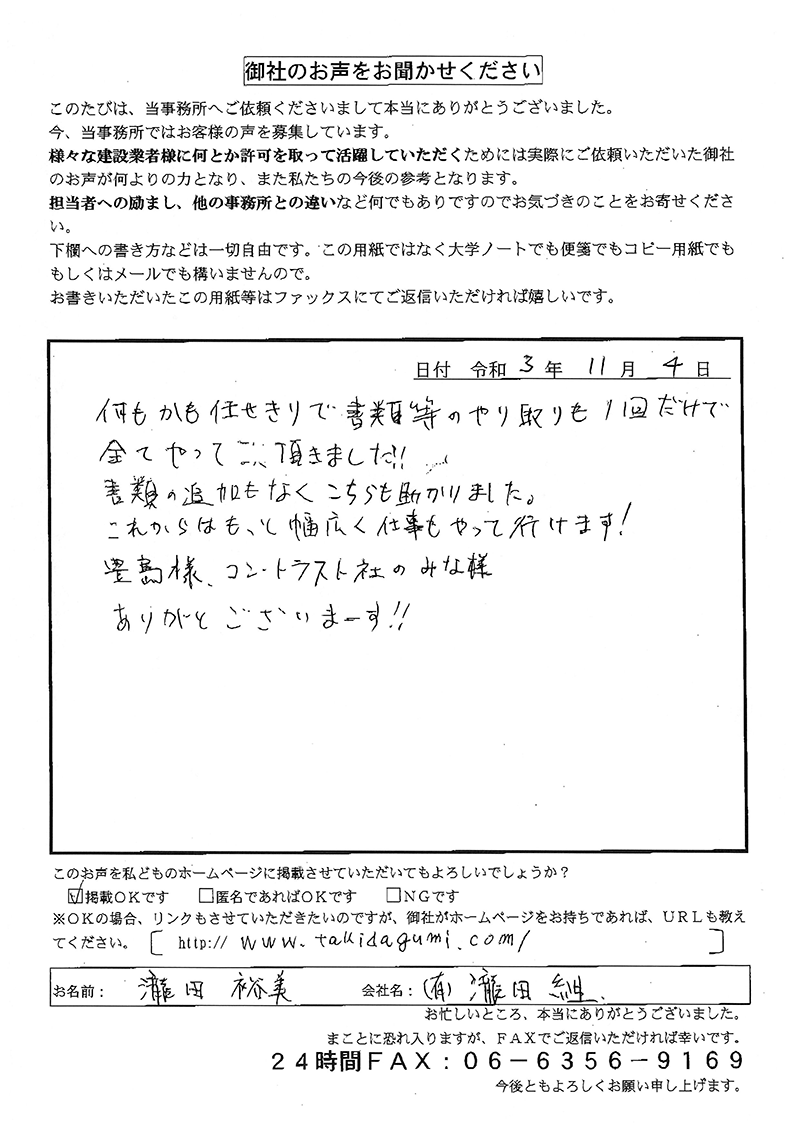 御社のお声をお聞かせください
このたびは、当事務所へご依頼くださいまして本当にありがとうございました。
今、当事務所ではお客様の声を募集しています。
様々な建設業者様に何とか許可を取って活躍していただくためには実際にご依頼いただいた御社
のお声が何よりの力となり、また私たちの今後の参考となります。
担当者への励まし、他の事務所との違いなど何でもありですのでお気づきのことをお寄せくださ
い。
下欄への書き方などは一切自由です。この用紙ではなく大学ノートでも便箋でもコピー用紙でも
もしくはメールでも構いませんので。
お書きいただいたこの用紙等はファックスにてご返信いただければ嬉しいです。
日付 令和 3 年 11 月 4 日
何もかも任せきりで書類等のやり取りも1回だけで
全てやって 頂きました!!
書類の追加もなくこちらも助かりました。
これからはもっと幅広く仕事もやって行けます!
豊島様、コントラスト社のみな様
ありがとございまーす!!
このお声を私どものホームページに掲載させていただいてもよろしいでしょうか?
☑掲載OKです □匿名であればOKです □NGです
※OKの場合、リンクもさせていただきたいのですが、御社がホームページをお持ちであれば、URLも教え
てください。[ http:// www.takidagumi.com/ ]
お名前: 瀧田 裕美 会社名: (有)瀧田組.
お忙しいところ、本当にありがとうございました。
まことに恐れ入りますが、FAXでご返信いただければ幸いです。
24時間FAX:06-6356-9169
今後ともよろしくお願い申し上げます。